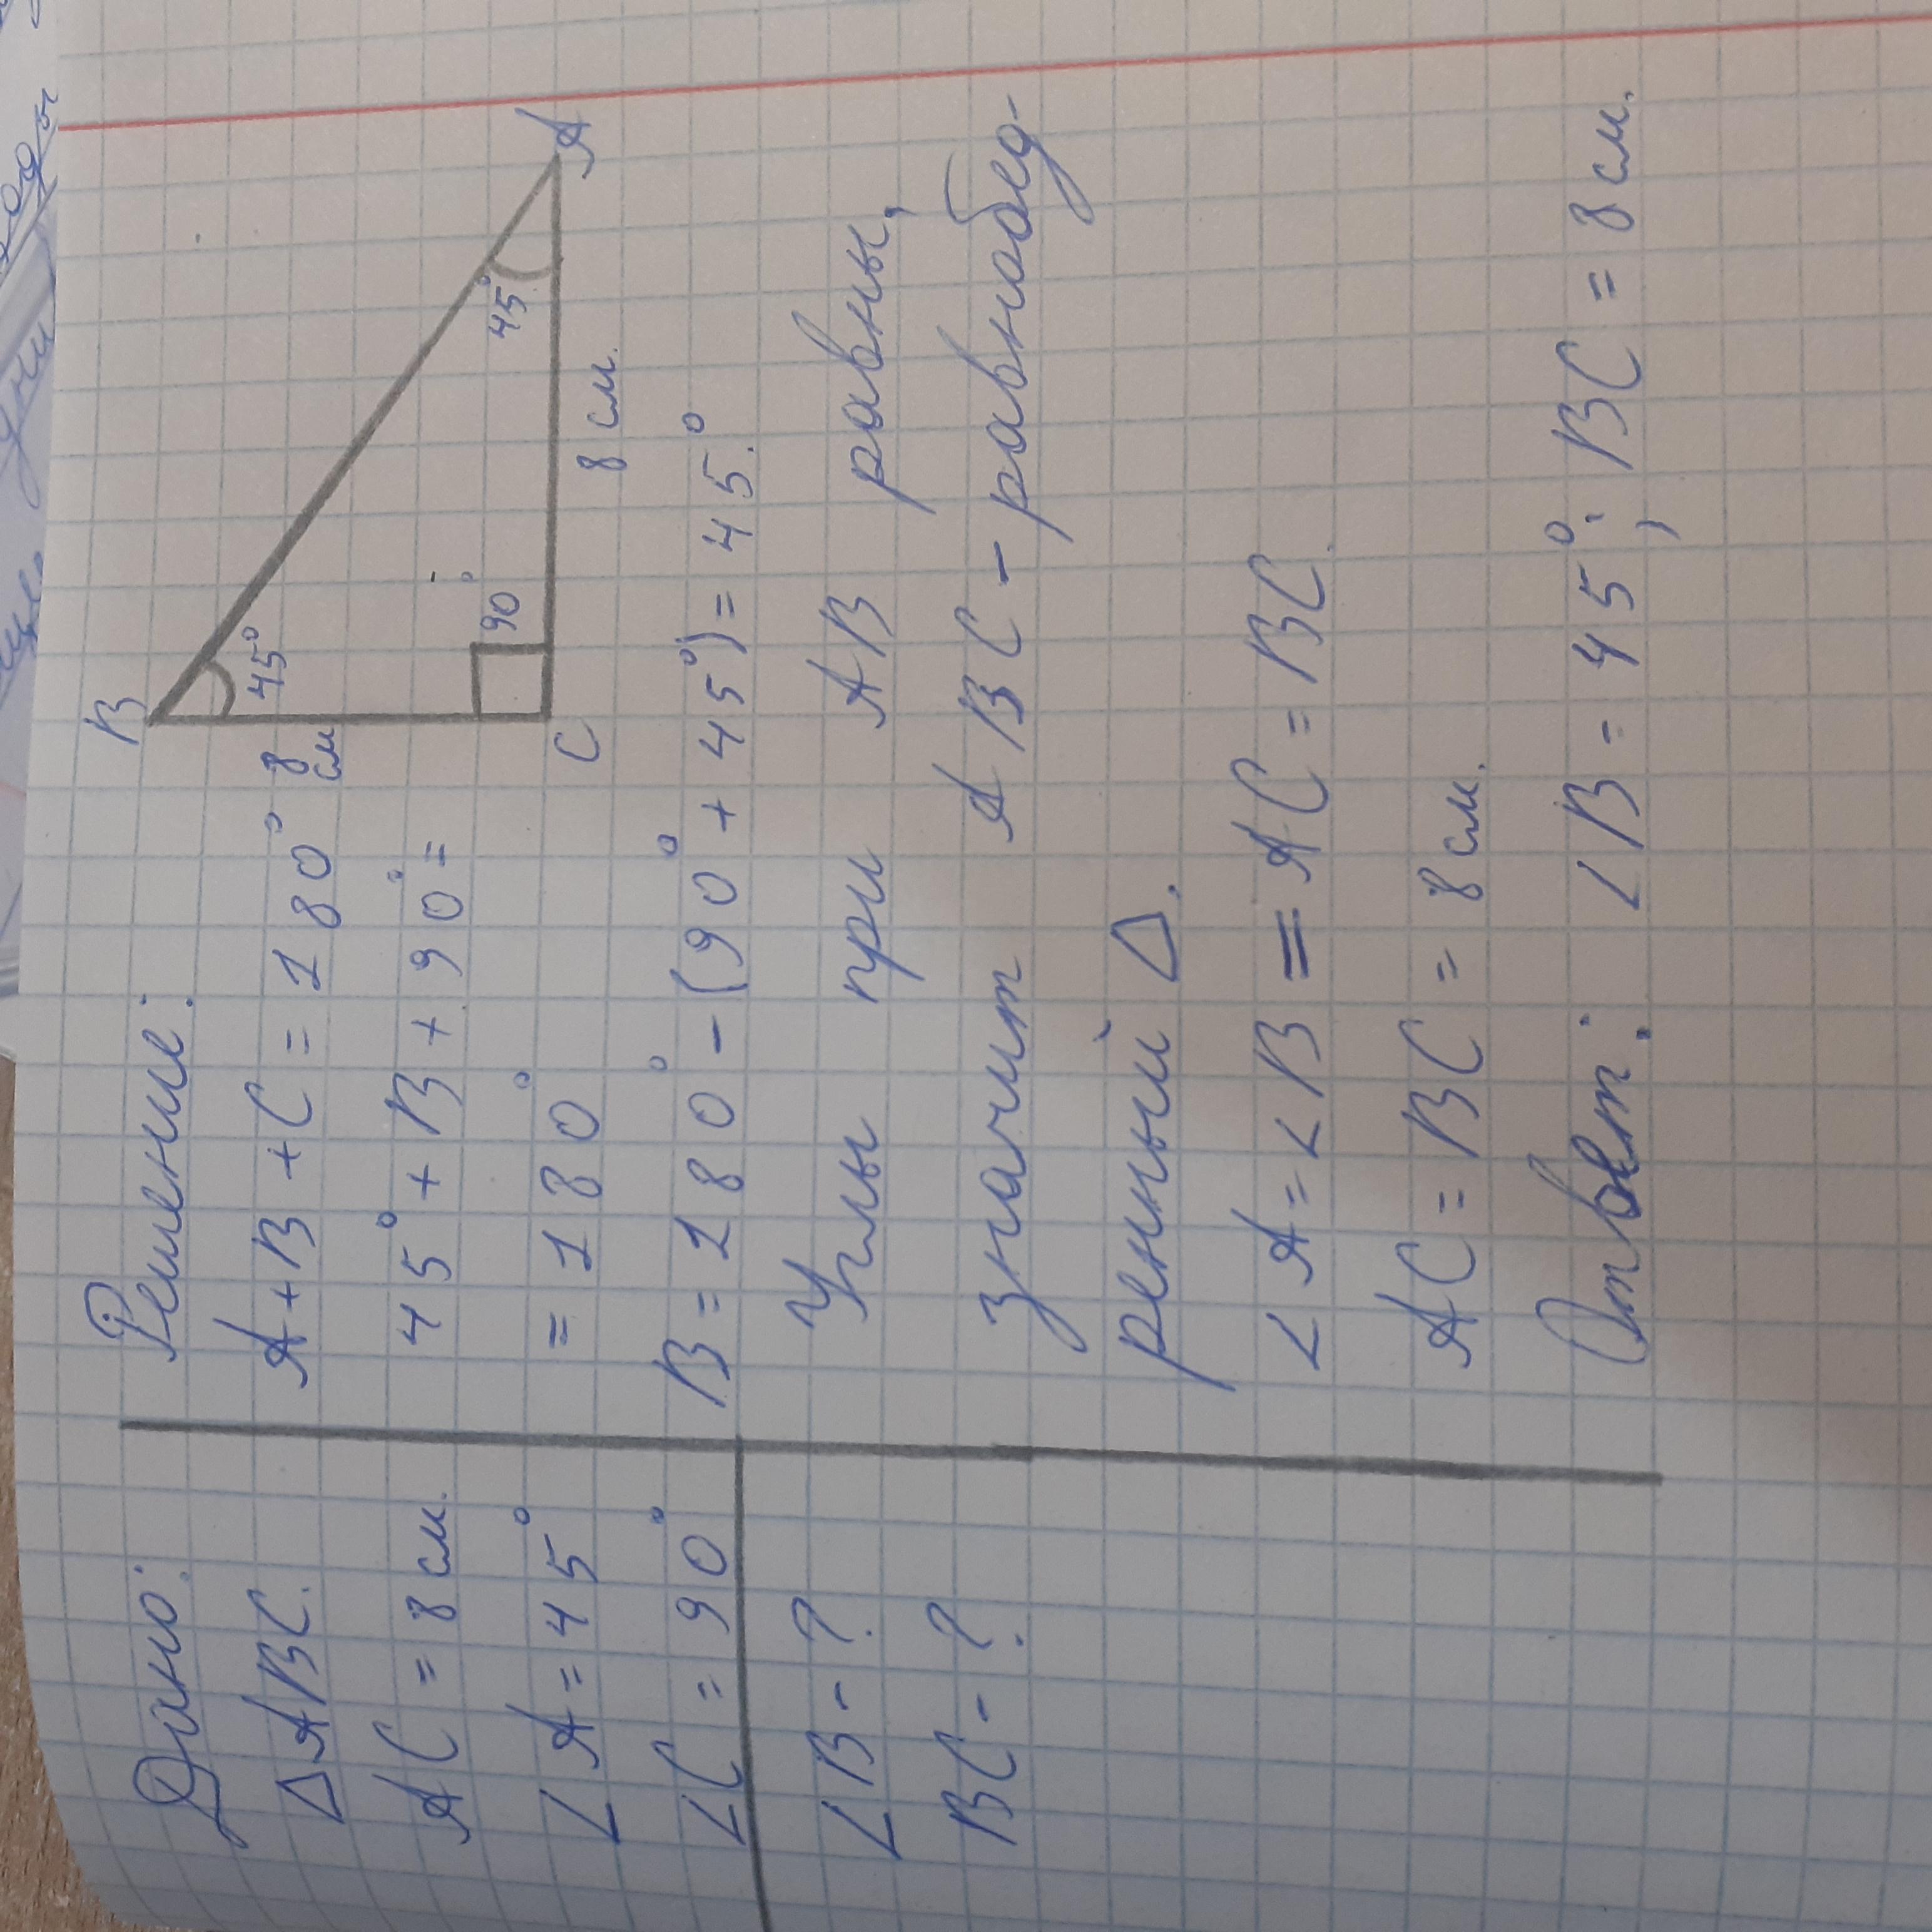 Дано:
△ABC.
AC = 8 см.
∠A = 45°
∠C = 90°
∠B - ?
BC - ?
Решение:
A + B + C = 180°
45° + B + 90° =
= 180°
B = 180° - (90° + 45°) = 45.°
Углы при AB равны,
значит ABC - равнобед-
ренный △.
∠A = ∠B = AC = BC.
AC = BC = 8 см.
Ответ: ∠B - 45°; BC = 8 см.
B
45°
8
см
90°
C
8 см.
45°
A